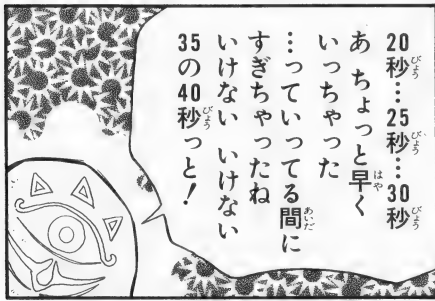 20秒…25秒…30秒
あ ちょっと早く
いっちゃった
…っていってる間に
すぎちゃったね
いけない いけない
35の40秒っと!